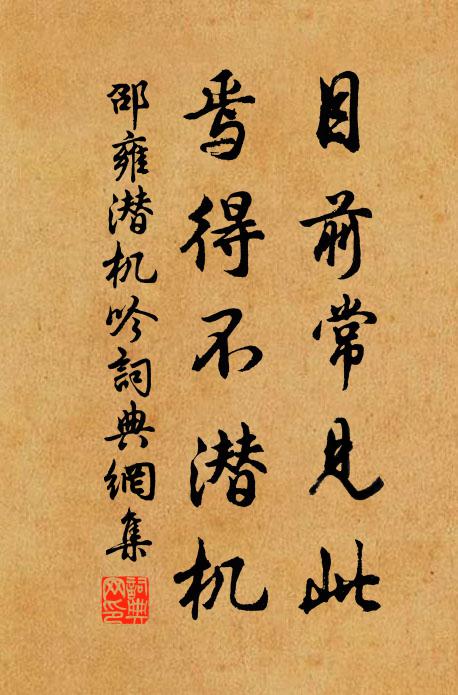 目前常見此
焉得不潜机
邵雍潜机吟詞典網集
詞典网印